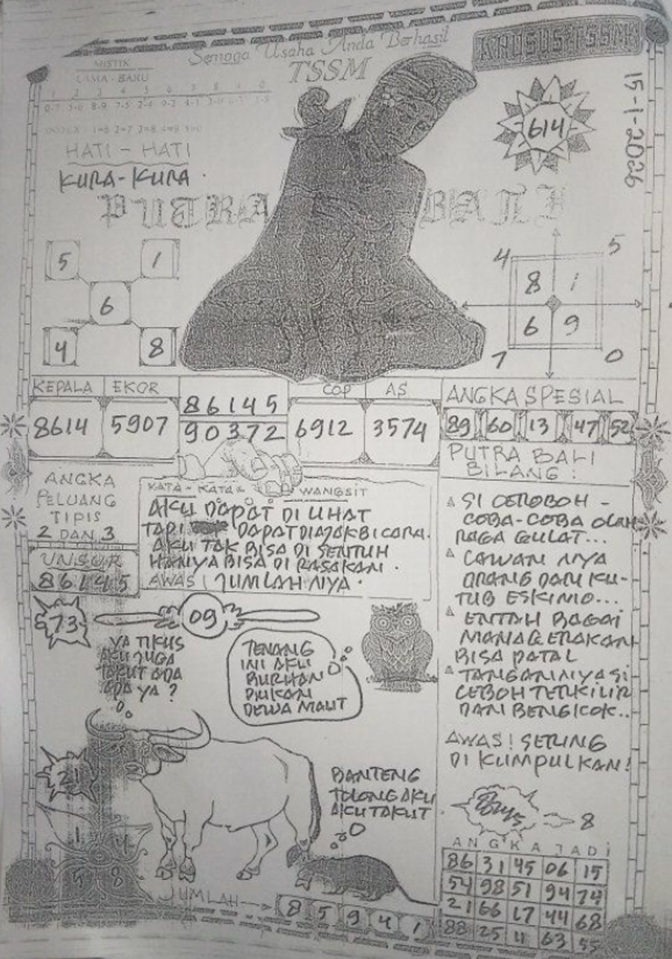 Semoga Usaha Anda Berhasil
TSSM
KHUSUS TSSM
MISTIK
LAMA - BARU
1 2 3 4 5 6 7 8 9 0
614
15-1-2026
HATI - HATI
KURA-KURA.
PUTRA BALI
5 1
6
4 8
4 5
8 1
6 9
7 0
KEPALA EKOR
8614 5907
86145
90372
COP AS
6912 3574
ANGKA SPESIAL
89 60 13 47 52
ANGKA
PELUANG
TIPIS
2 DAN 3
UNSUR
86145
KATA - KATA WANGSIT
AKU DAPAT DI LIHAT
TAPI DAPAT DIAJAK BICARA.
AKU TAK BISA DI SENTUH
HANYA BISA DI RASAKAN.
AWAS! JUMLAH NYA.
PUTRA BALI
BILANG:
SI CEROBOH -
COBA-COBA OLAH
RAGA GULAT...
LAWAN NYA
ORANG DARI KU-
TUB ESKIMO...
ENTAH BAGAI
MANA GERAKAN
BISA PATAL
TANGANNYA SI
CEBOH TERKILIR
DAN BENGKOK..
AWAS! SERING
DI KUMPULKAN!
8
673
09
YA TIKUS
AKU JUGA
TAKUT ADA
APA YA?
TENANG
INI AKU
BURHAN
BUKAN
DEWA MAUT
21
1 4
5 8
BANTENG
TOLONG AKU
AKU TAKUT
JUMLAH
8 5 9 4 1
ANGKA JADI
86 31 45 06 15
54 98 51 94 74
21 66 17 44 68
88 25 11 63 55